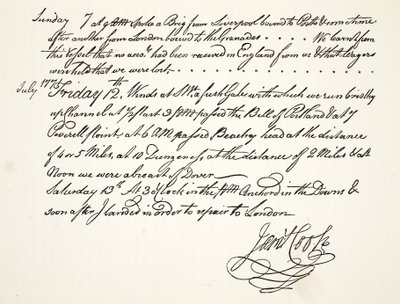 Sunday 7 at 9 AM Spoke a Brig from Liverpool bound to Porto & some time
after another from London bound to the Granades .... We learnt from
this Vessel that no acc.ts had been received in England from us & that Wagers
were held that we were lost.
July 1775
Friday 12.th Winds at SW a fresh Gale with which we run briskly
up Channel at 1/2 past 3 passed the Bill of Portland & at 7
Peverell Point at 6 AM passed Beachy head at the distance
of 4 or 5 Miles, at 10 Dungeness at the distance of 2 Miles & at
Noon we were abreast of Dover
Saturday 13.th At 3 o'Clock in the PM Anchord in the Downs &
soon after I landed in order to repair to London
Jam.s Cook